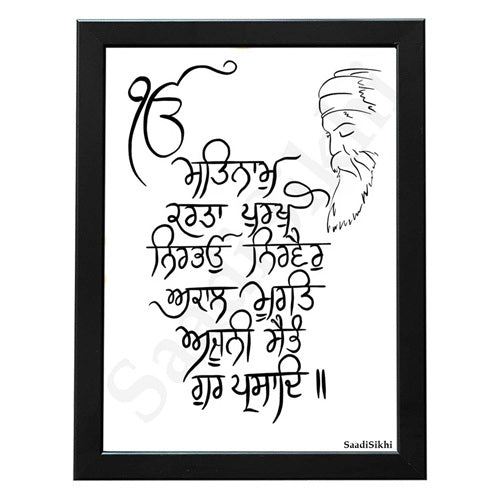 ੴ
ਸਤਿਨਾਮੁ
ਕਰਤਾ ਪੁਰਖੁ
ਨਿਰਭਉ ਨਿਰਵੈਰੁ
ਅਕਾਲ ਮੂਰਤਿ
ਅਜੂਨੀ ਸੈਭੰ
ਗੁਰ ਪ੍ਰਸਾਦਿ ॥
SaadiSikhi
SaadiSikhi